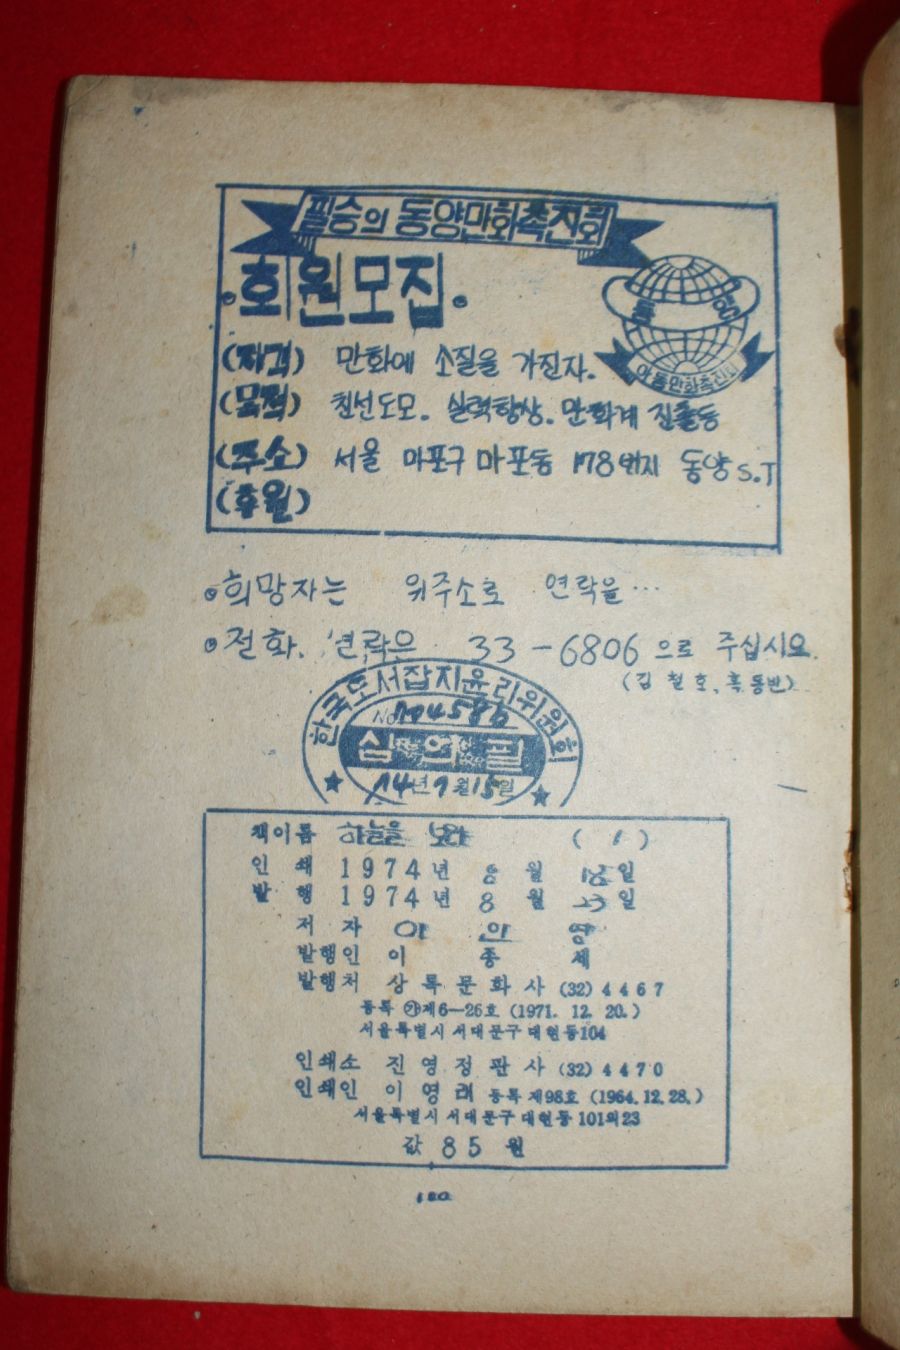 필승의 동양만화촉진회
•회원모집•
동양
아동만화촉진회
(자격) 만화에 소질을 가진자.
(목적) 친선도모. 실력향상. 만화계 진출등
(주소) 서울 마포구 마포동 178번지 동양 S.T
(후원)
•희망자는 위주소로 연락을…
•전화. 연락은 33-6806으로 주십시요.
(김철호, 혹 동빈)
한국도서잡지윤리위원회
No
심의필
74년 7월 15일
책이름 하늘을 보라 (1)
인쇄 1974년 8월 일
발행 1974년 8월 일
저자 이
발행인 이종세
발행처 상록문화사 (32) 4467
등록 ㉮제6-26호 (1971. 12. 20.)
서울특별시 서대문구 대현동104
인쇄소 진영정판사 (32) 4470
인쇄인 이영래 등록 제98호 (1964. 12. 28.)
서울특별시 서대문구 대현동 101의23
값 85원